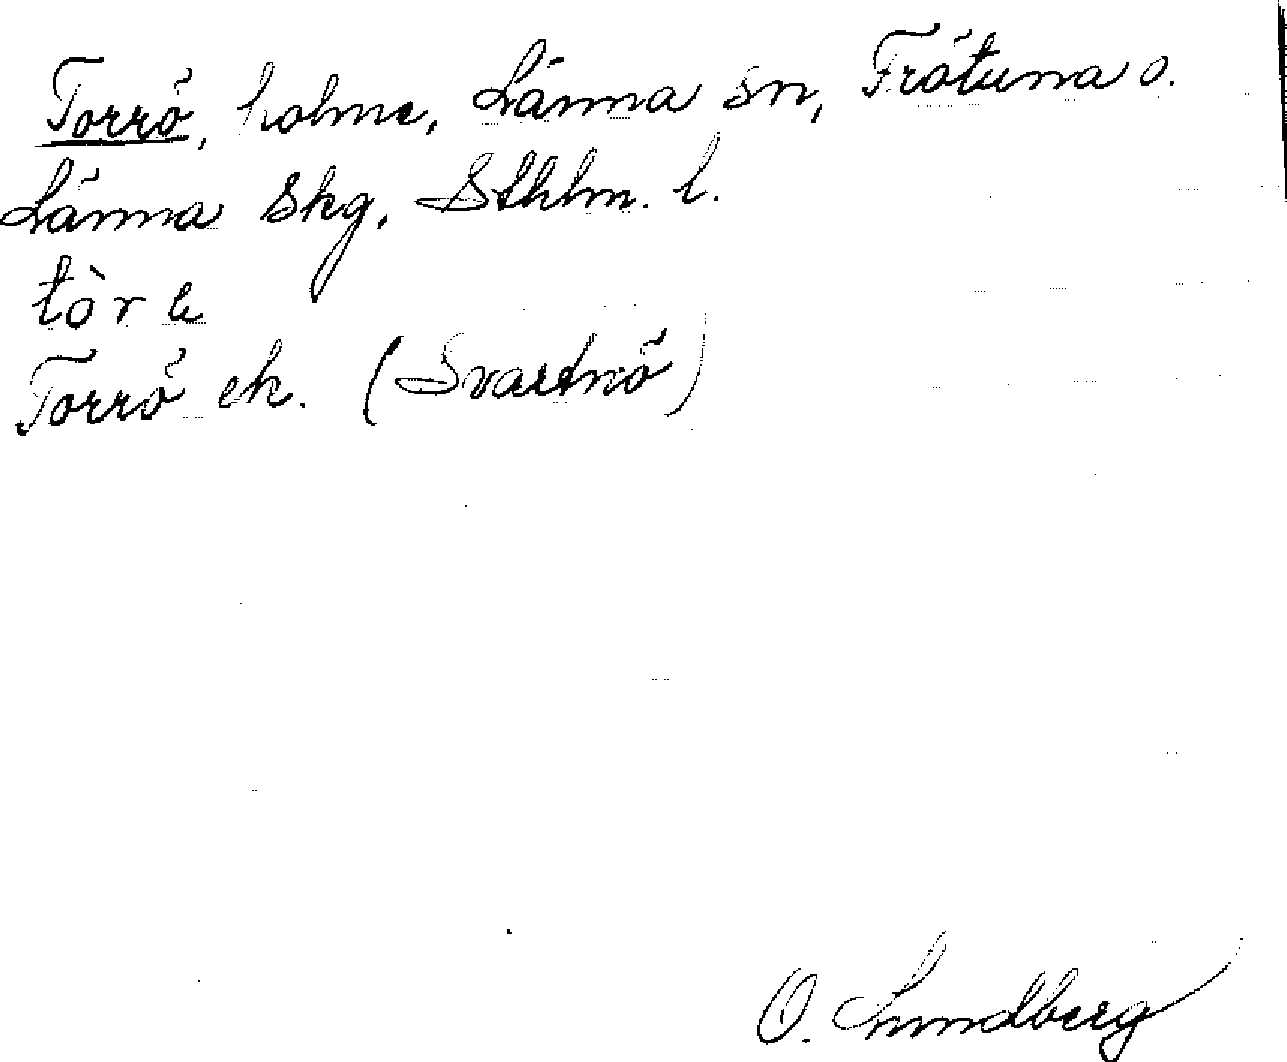 Torrö, holme, Länna sn, Frötuna o.
Länna skg, Sthlm. l.
tòr e
Torrö ek. (Svartnö)
O. Lundberg